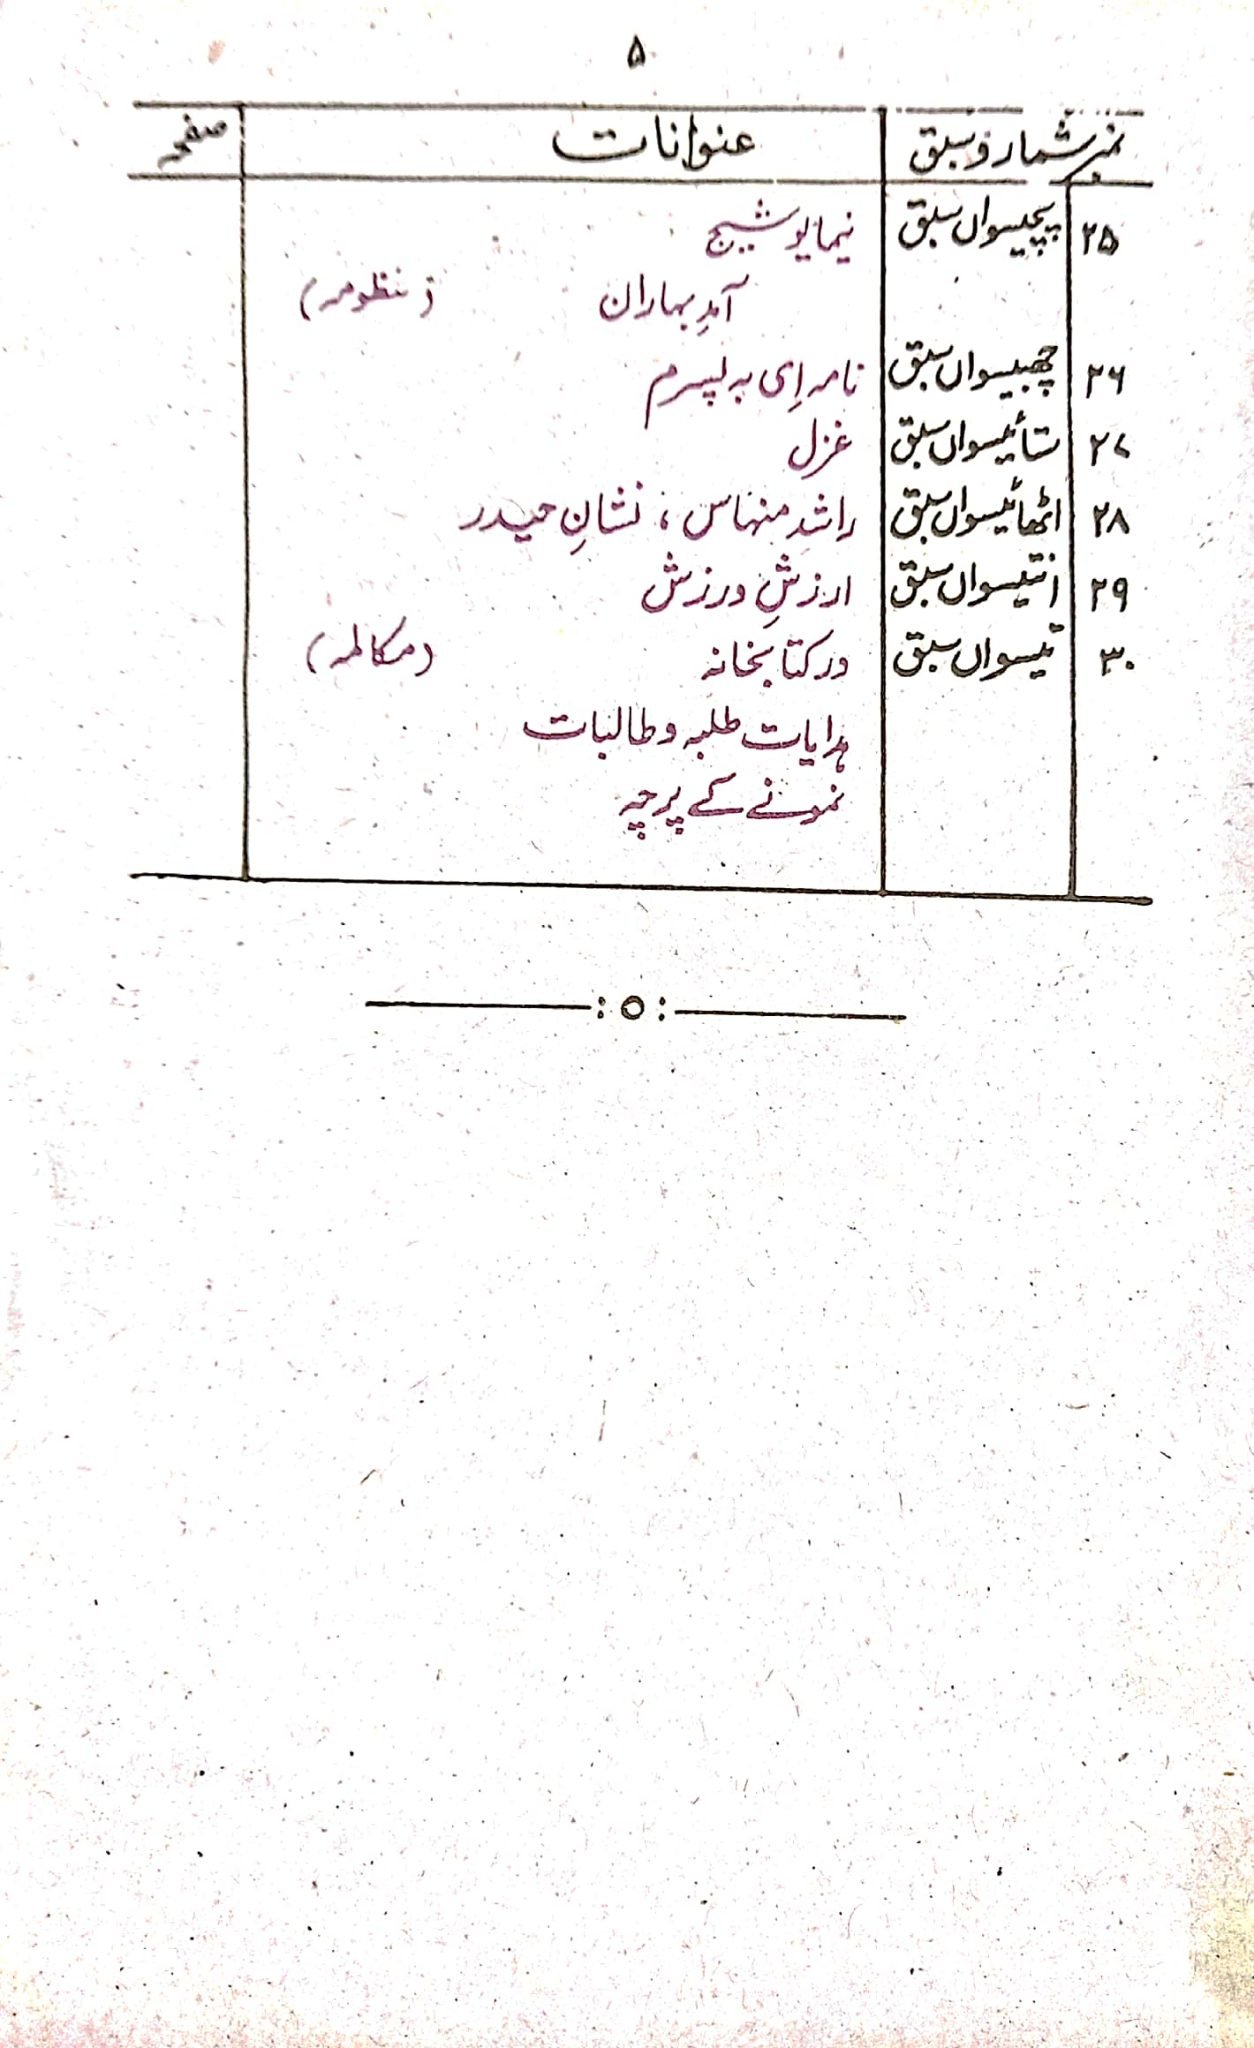 ۵
نمبر شمار و سبق عنوانات صفحہ
۲۵ پچیسواں سبق نیما یوشیج
آمدِ بہاران (منظومہ)
۲۶ چھبیسواں سبق نامہ اِی بہ پسرم
۲۷ ستائیسواں سبق غزل
۲۸ اٹھائیسواں سبق راشد منہاس، نشانِ حیدر
۲۹ انتیسواں سبق ارزشِ ورزش
۳۰ تیسواں سبق در کتابخانہ (مکالمہ)
ہدایات طلبہ و طالبات
نمونے کے پرچہ